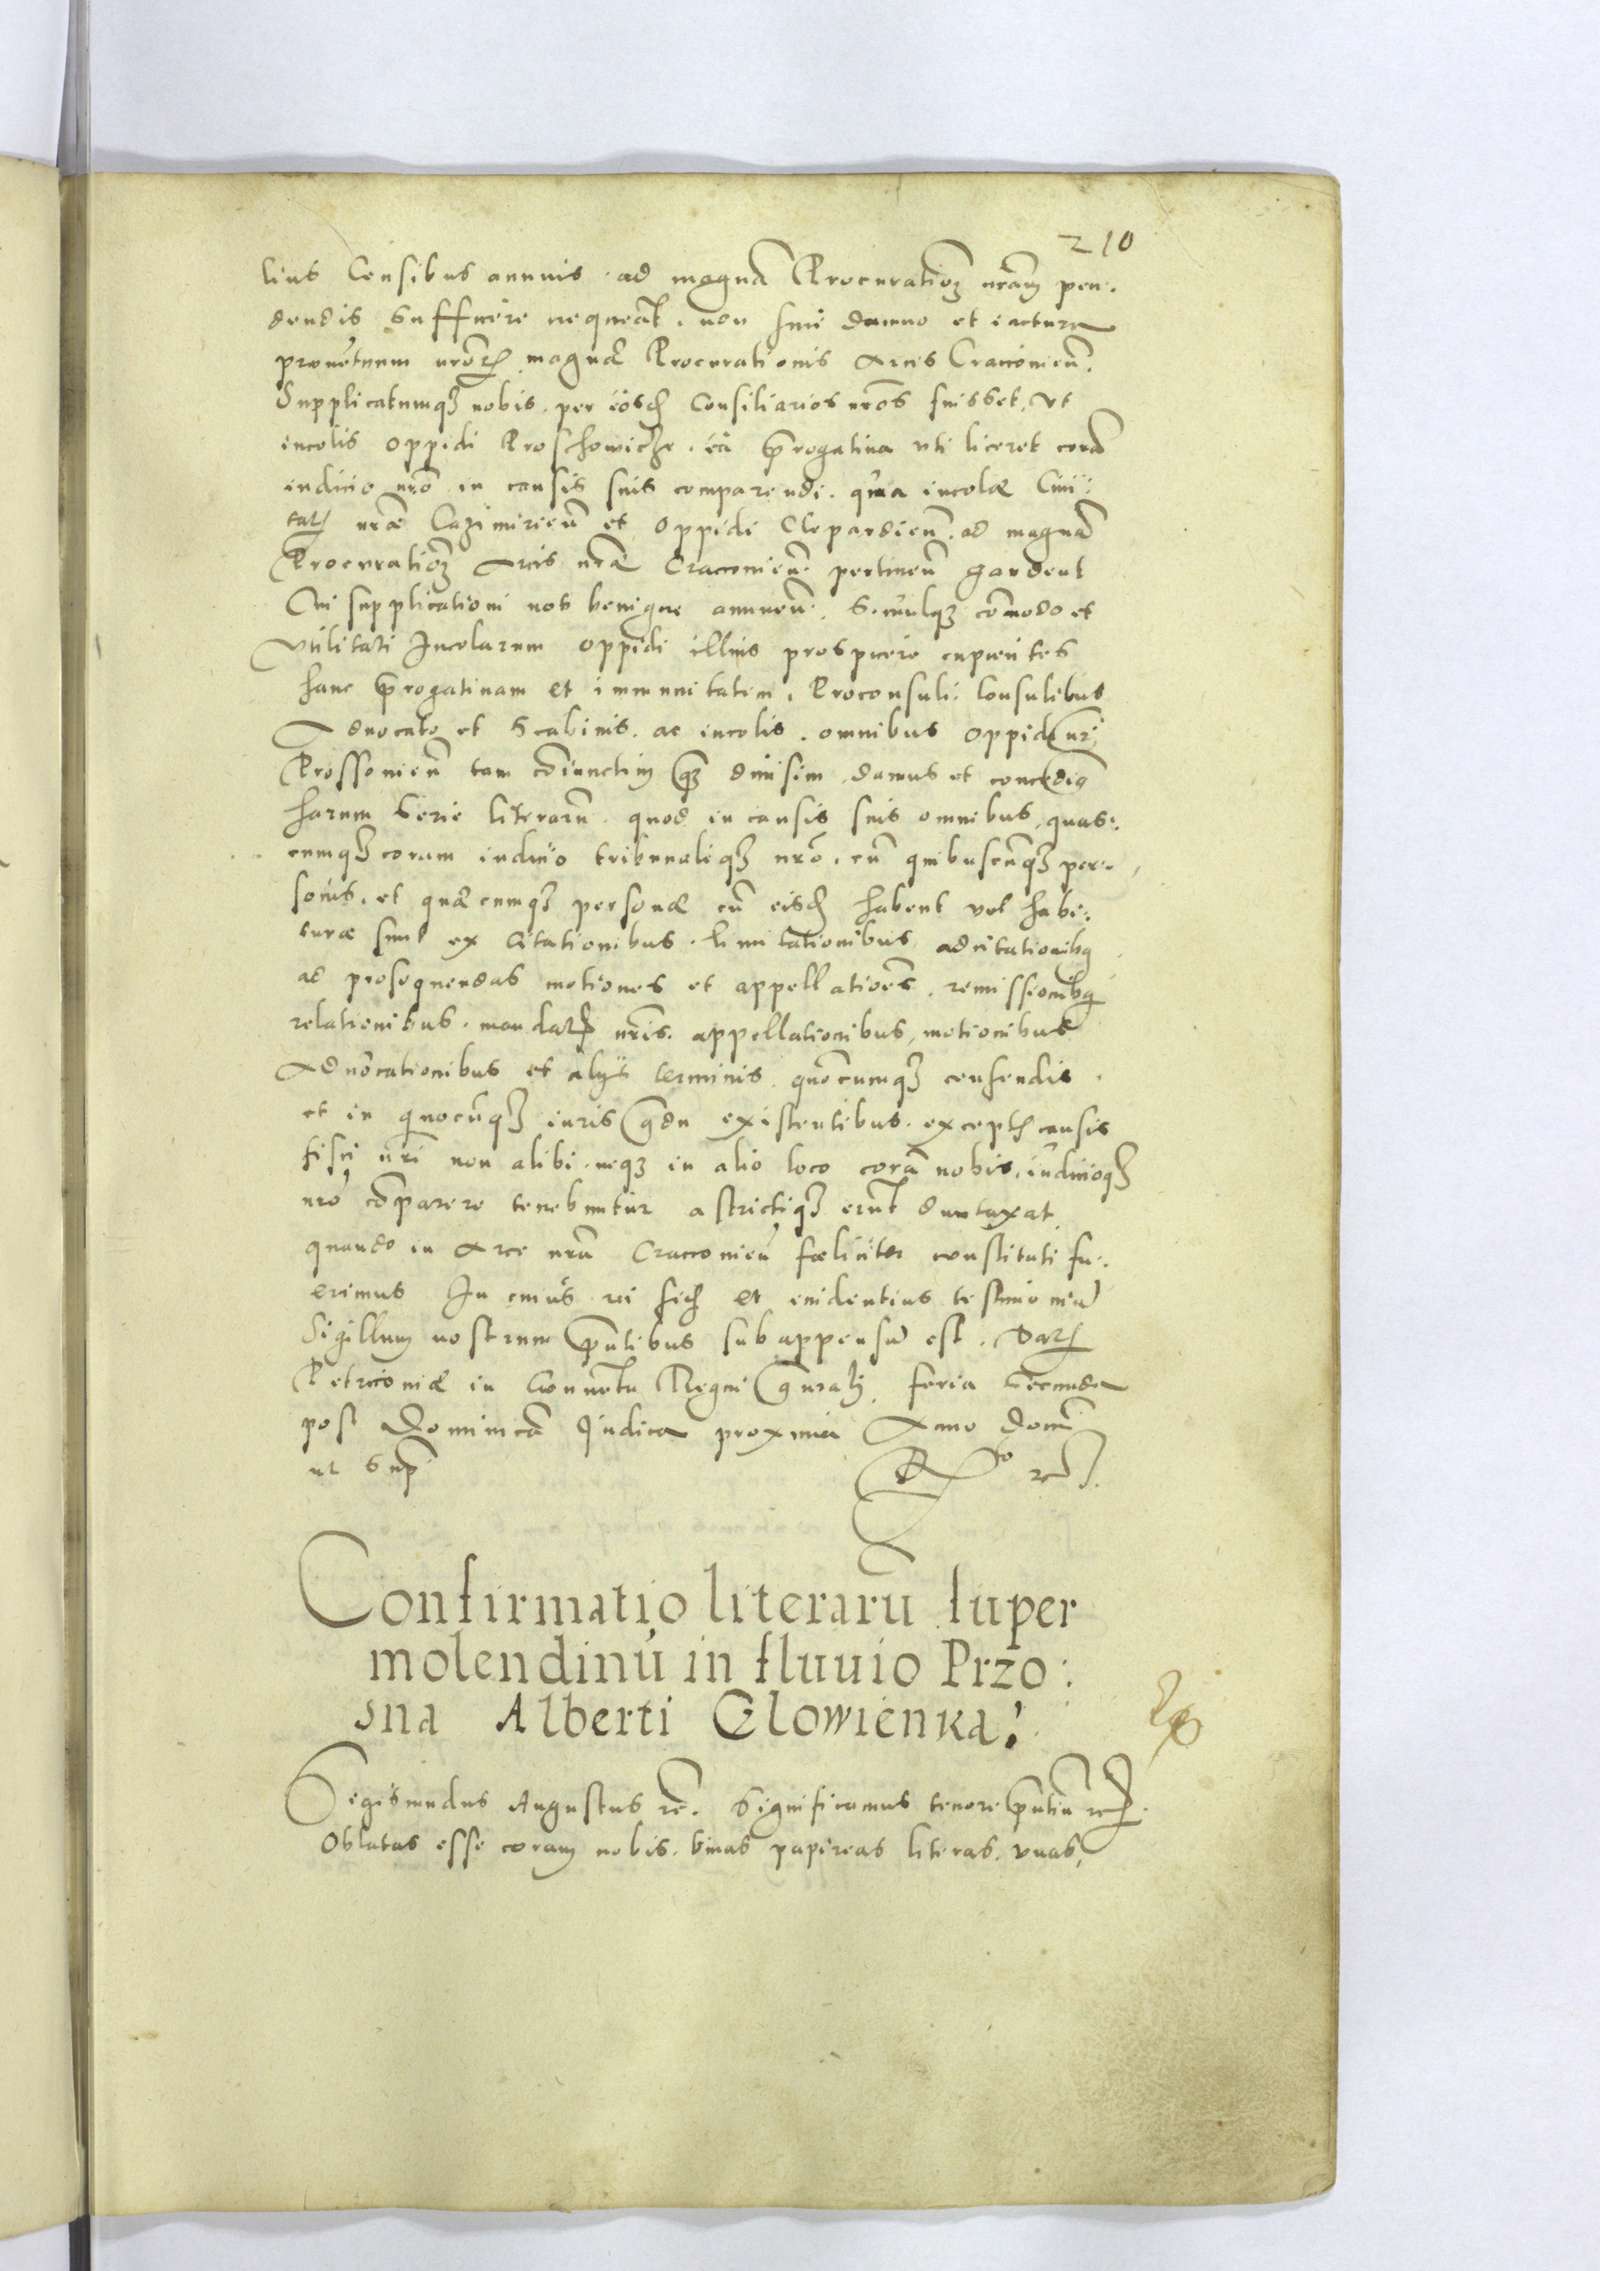 210
lius Censibus annuis. ad magnã Procurationẽ nrãm pen.
dendis Sufficere nequeãt. non sine damno et iactura
prouẽtuum nrõrũ magnæ Procurationis Arcis Cracouieñ.
Supplicatumq3 nobis. per eosd Consiliarios nrõs fuisset, Vt
incolis oppidi Proschowicze. eã prerogatiua vti liceret corã
iudicio nrõ in causis suis comparendi. qua incolæ Ciui:
tatis nrãe Cazimirieñ et Oppidi Clepardieñ. ad magnã
Procurationẽ Arcis nrãe Cracouieñ. pertineñ gardent
Cui supplicationi nos benigne annueñ. Simulq3 cõmodo et
Vtilitati Incolarum oppidi illius prospicere cupientes
hanc prerogatiuam et immunitatem. Proconsuli. Consulibus
Aduocato et Scabinis. ac incolis. omnibus oppidi nri
Prossouieñ tam cõiunctim q3 diuisim damus et concedim9
harum Serie literarũ. quod in causis suis omnibus, quas:
cumq3 coram iudicio tribunaliq3 nrõ. cũ quibuscũq3 per.
sonis. et quæcumq3 personæ cũ eisd habent vel habi:
turæ sunt ex Citationibus. limitationibus adcitationib9
ad prosequendas motiones et appellatiões. remissionib9
relationibus. mandatis nrĩs. appellationibus, motionibus
Aduocationibus et alijs terminis quocumq3 censendis.
et in quocũq3 iuris gradu existentibus. exceptis causis
fisci nrĩ non alibi. neq3 in alio loco corã nobis, iudicioq3
nrõ cõparere tenebuntur astrictiq3 erũt duntaxat
quando in Arce nrã Cracouieñ fœliciter constituti fu.
erimus In cuius rei fid et euidentius testimoniũ
Sigillum nostrum pñtibus subappensũ est. Datum
Petricouiæ in Conuẽtu Regni gñrali feria secunda
post Dominicã Iudica proxima Anno Domĩ
ut Supra
Confirmatio literarũ super
molendinũ in fluuio Przo:
sna Alberti Glowienka.
Sigismudus Augustus rẽ. Significamus tenore pñtiũ
Oblatas esse coram nobis. binas papireas literas. vnas,